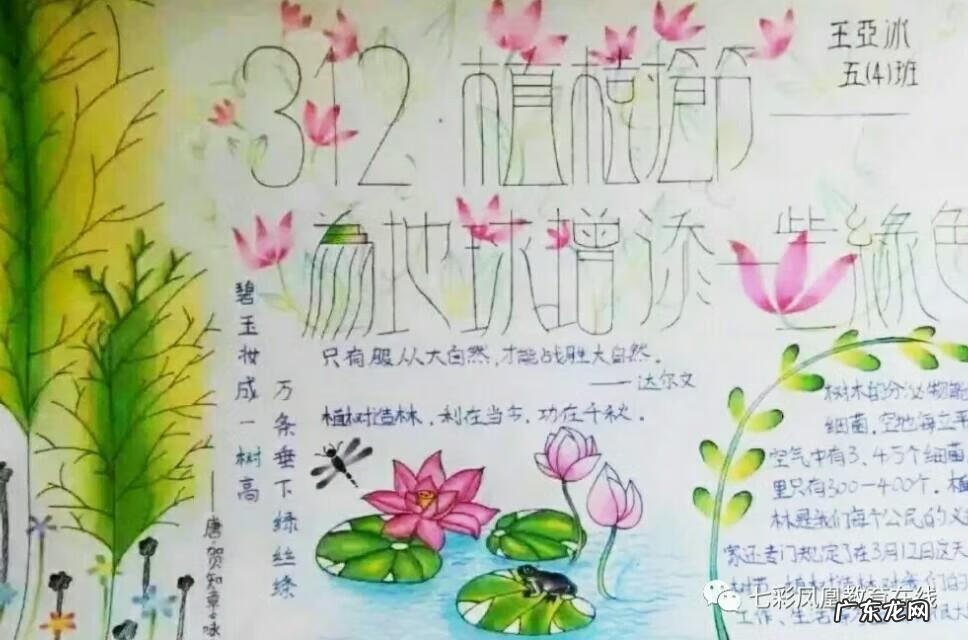 王亞冰
五(4)班
312 植樹節——
為地球增添一些綠色
碧玉妆成一树高
万条垂下绿丝绦
——唐·贺知章《咏
只有服从大自然,才能战胜大自然。
——达尔文
植树造林,利在当今,功在千秋。
树木的分泌物能
细菌,空地每立平
空气中有3、4万个细菌
里只有300—400个。植
林是我们每个公民的义
家还专门规定了在3月12日这天
树节。植树造林对我们的
工作、生活
很大
七彩凤凰教育在线
广东龙网